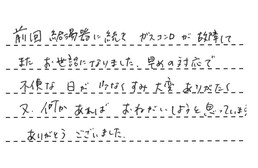 前回 給湯器に続て ガスコンロが 故障して
また お世話になりました。早めの対応で
不便な 日が 少なくすみ 大変 ありがたく
又、何か あれば おねがいしようと 思っています
ありがとう ございました。